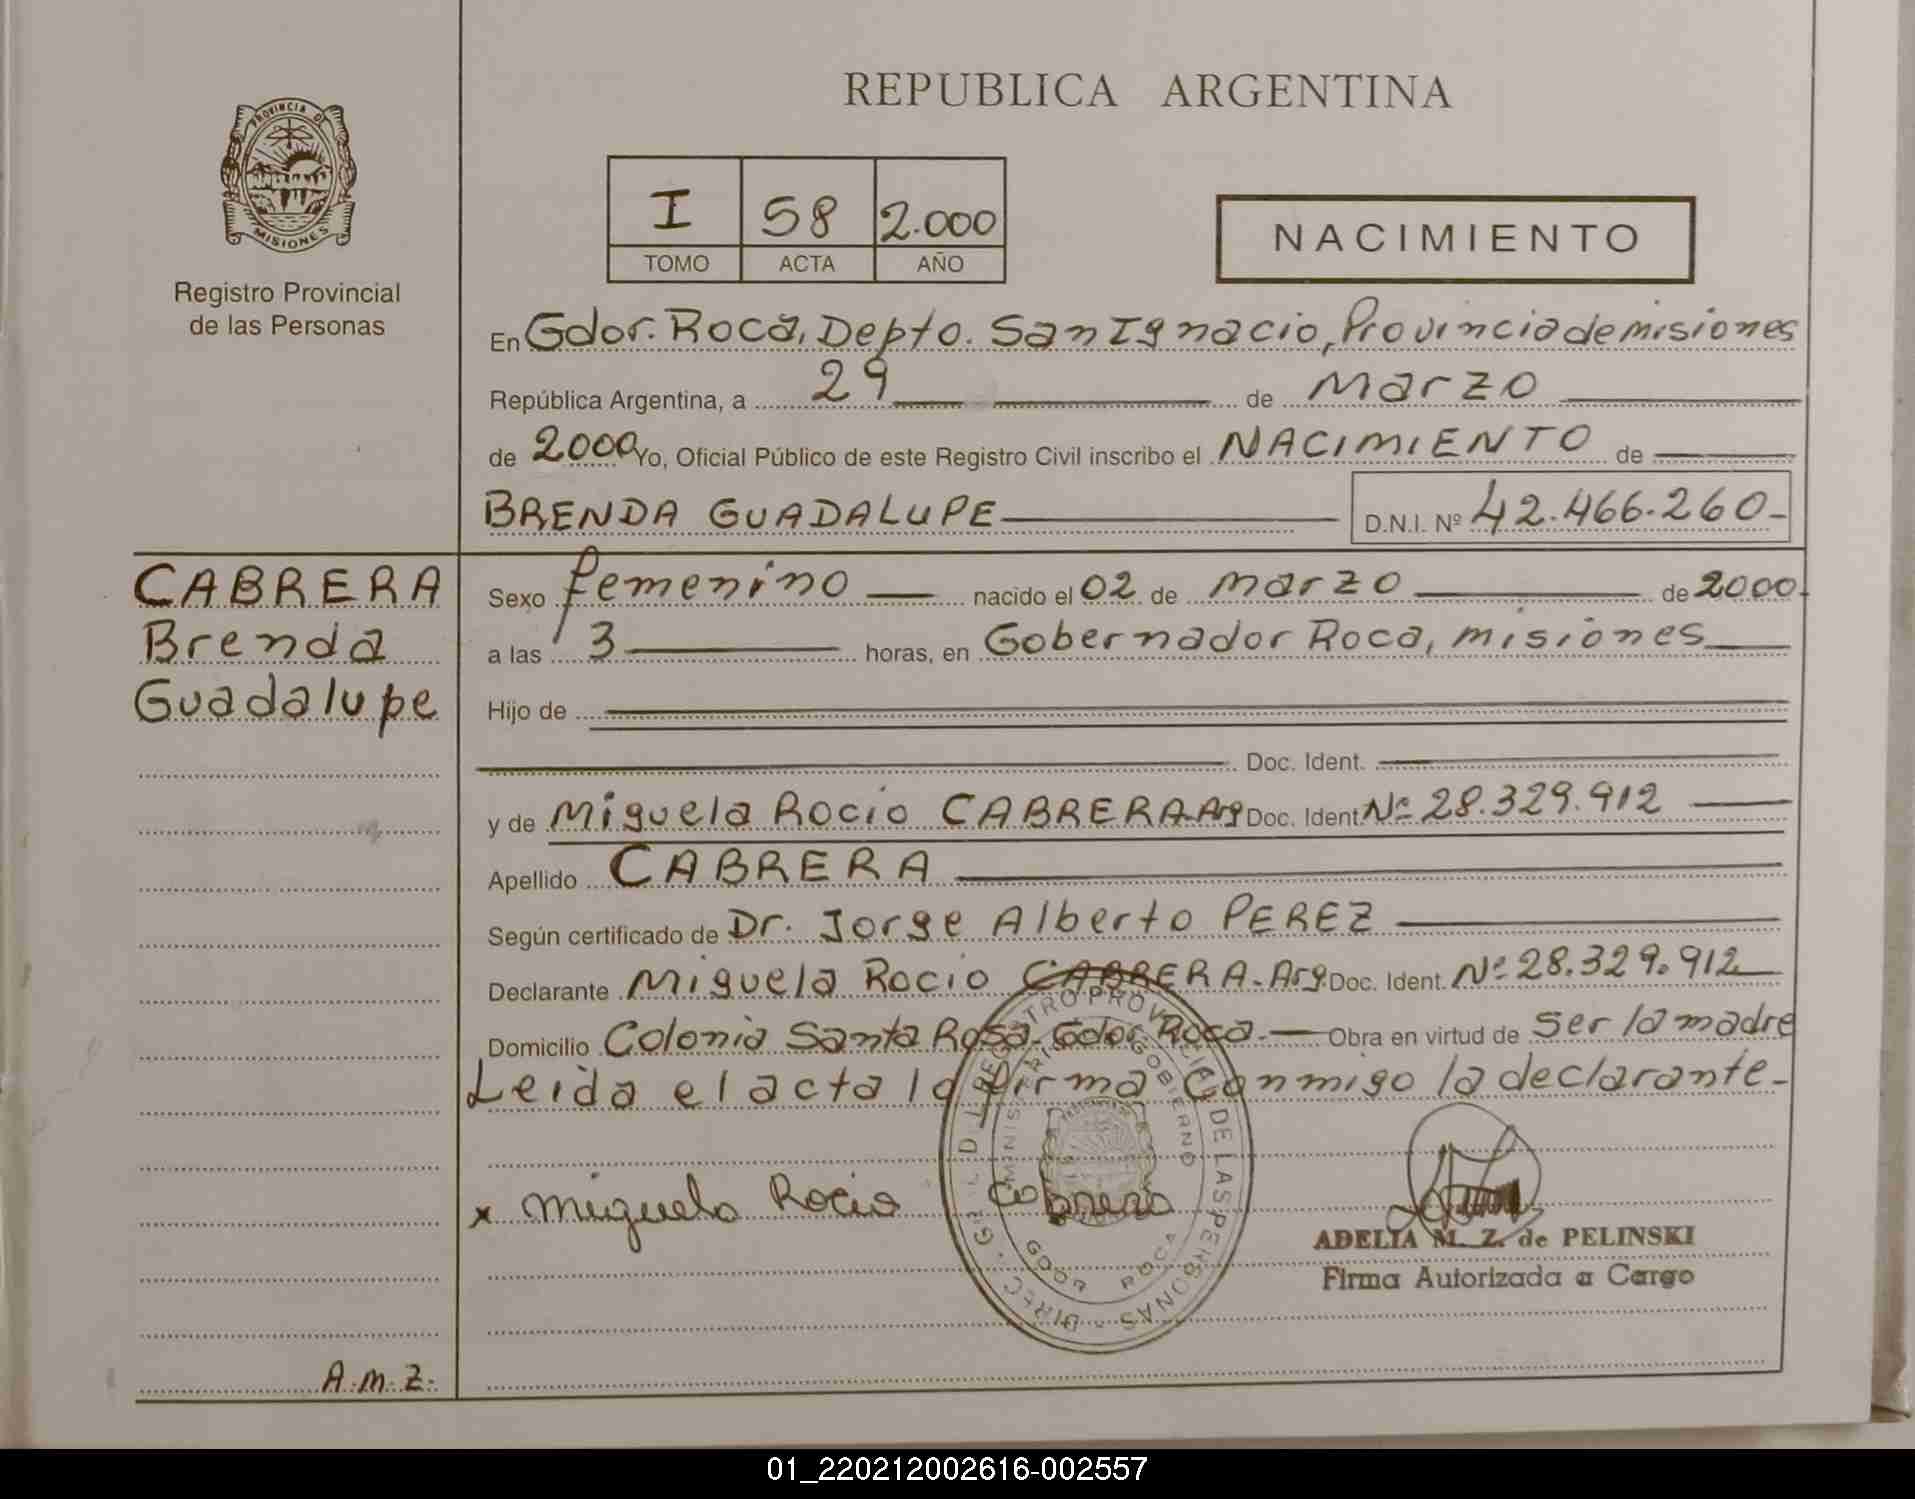 REPUBLICA ARGENTINA
PROVINCIA DE
MISIONES
Registro Provincial
de las Personas
I 58 2.000
TOMO ACTA AÑO
NACIMIENTO
En Gdor. Roca, Depto. San Ignacio, Provincia de misiones
República Argentina, a 29 de Marzo
de 2000 Yo, Oficial Público de este Registro Civil inscribo el NACIMIENTO de
BRENDA GUADALUPE D.N.I. Nº 42.466.260-
CABRERA
Brenda
Guadalupe
Sexo femenino nacido el 02 de marzo de 2000.
a las 3 horas, en Gobernador Roca, misiones
Hijo de
Doc. Ident.
y de Miguela Rocio CABRERA-Arg Doc. Ident. Nº 28.329.912
Apellido CABRERA
Según certificado de Dr. Jorge Alberto PEREZ
Declarante Miguela Rocio CABRERA-Arg. Doc. Ident. Nº 28.329.912
Domicilio Colonia Santa Rosa-Gdor Roca.- Obra en virtud de ser la madre
Leida el acta la firma conmigo la declarante-
x Miguela Rocio Cabrera
DIREC. GRAL DEL REGISTRO PROVINCIAL DE LAS PERSONAS
MINISTERIO DE GOBIERNO
GDOR ROCA
ADELIA M. Z. de PELINSKI
Firma Autorizada a Cargo
A.M.Z.
01_220212002616-002557